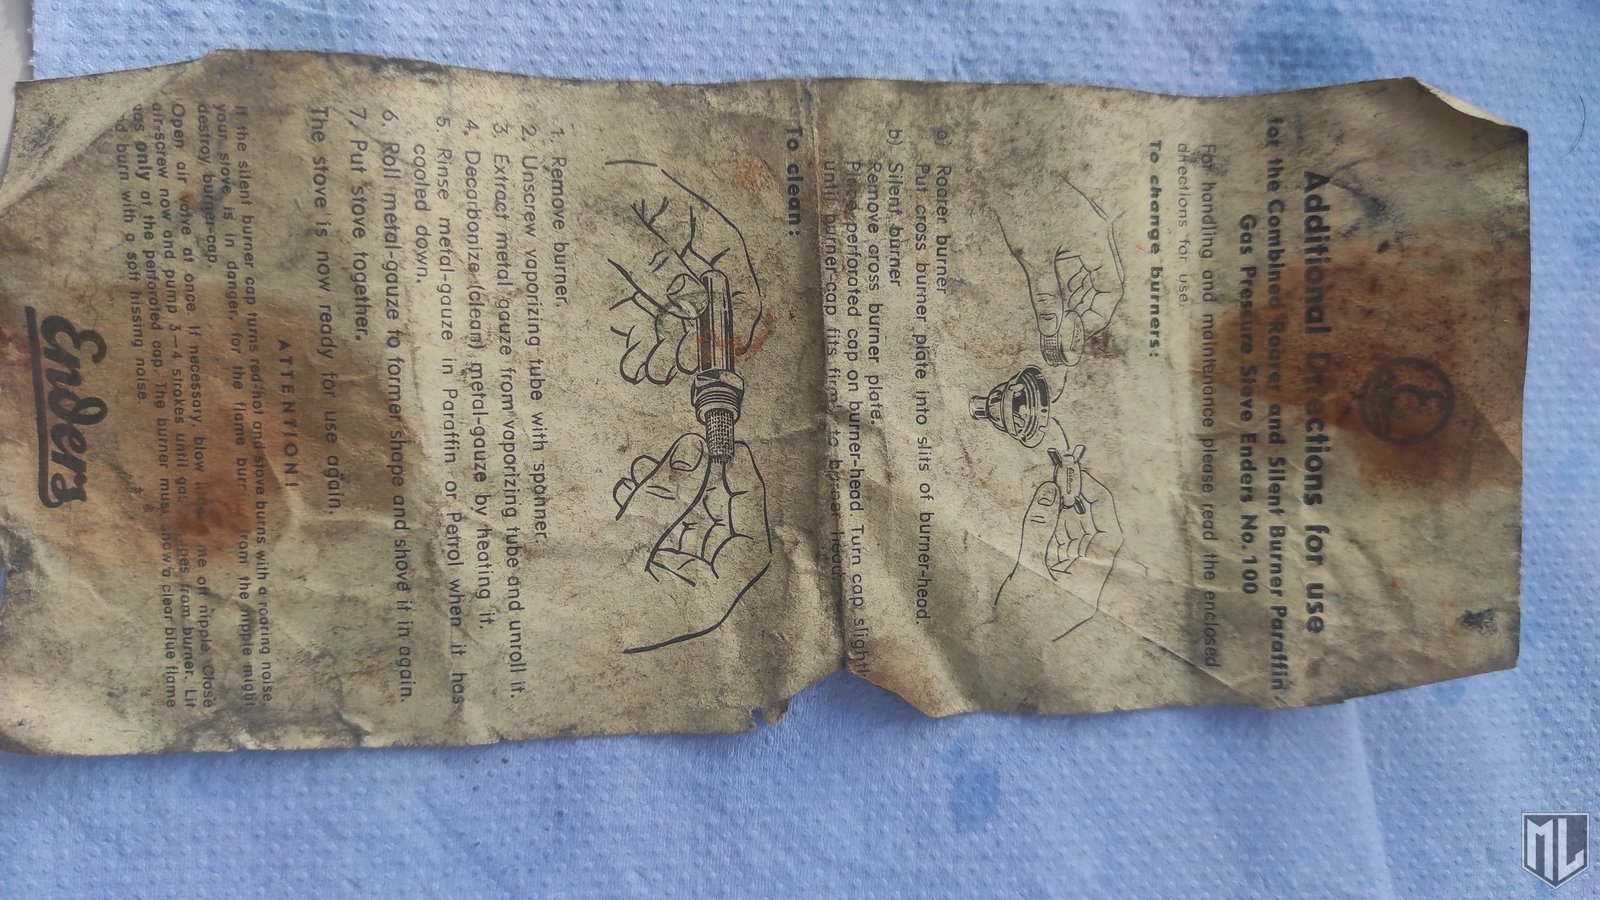 Additional Directions for use
for the Combined Roarer and Silent Burner Paraffin
Gas Pressure Stove Enders No. 100
For handling and maintenance please read the enclosed
directions for use.
To change burners:
a) Roarer burner
Put cross burner plate into slits of burner-head.
b) Silent burner
Remove cross burner plate.
Place perforated cap on burner-head. Turn cap slightly
until burner-cap fits firmly to burner head.
To clean:
1. Remove burner.
2. Unscrew vaporizing tube with spanner.
3. Extract metal gauze from vaporizing tube and unroll it.
4. Decarbonize (clean) metal-gauze by heating it.
5. Rinse metal-gauze in Paraffin or Petrol when it has
cooled down.
6. Roll metal-gauze to former shape and shove it in again.
7. Put stove together.
The stove is now ready for use again.
ATTENTION!
If the silent burner cap turns red-hot and stove burns with a roaring noise,
your stove is in danger, for the flame burns from the nipple might
destroy burner-cap.
Open air valve at once. If necessary, blow off nipple. Close
air-screw now and pump 3—4 strokes until gas from burner. Lit
gas only at the perforated cap. The burner must show a clear blue flame
and burn with a soft hissing noise.
Enders
ML